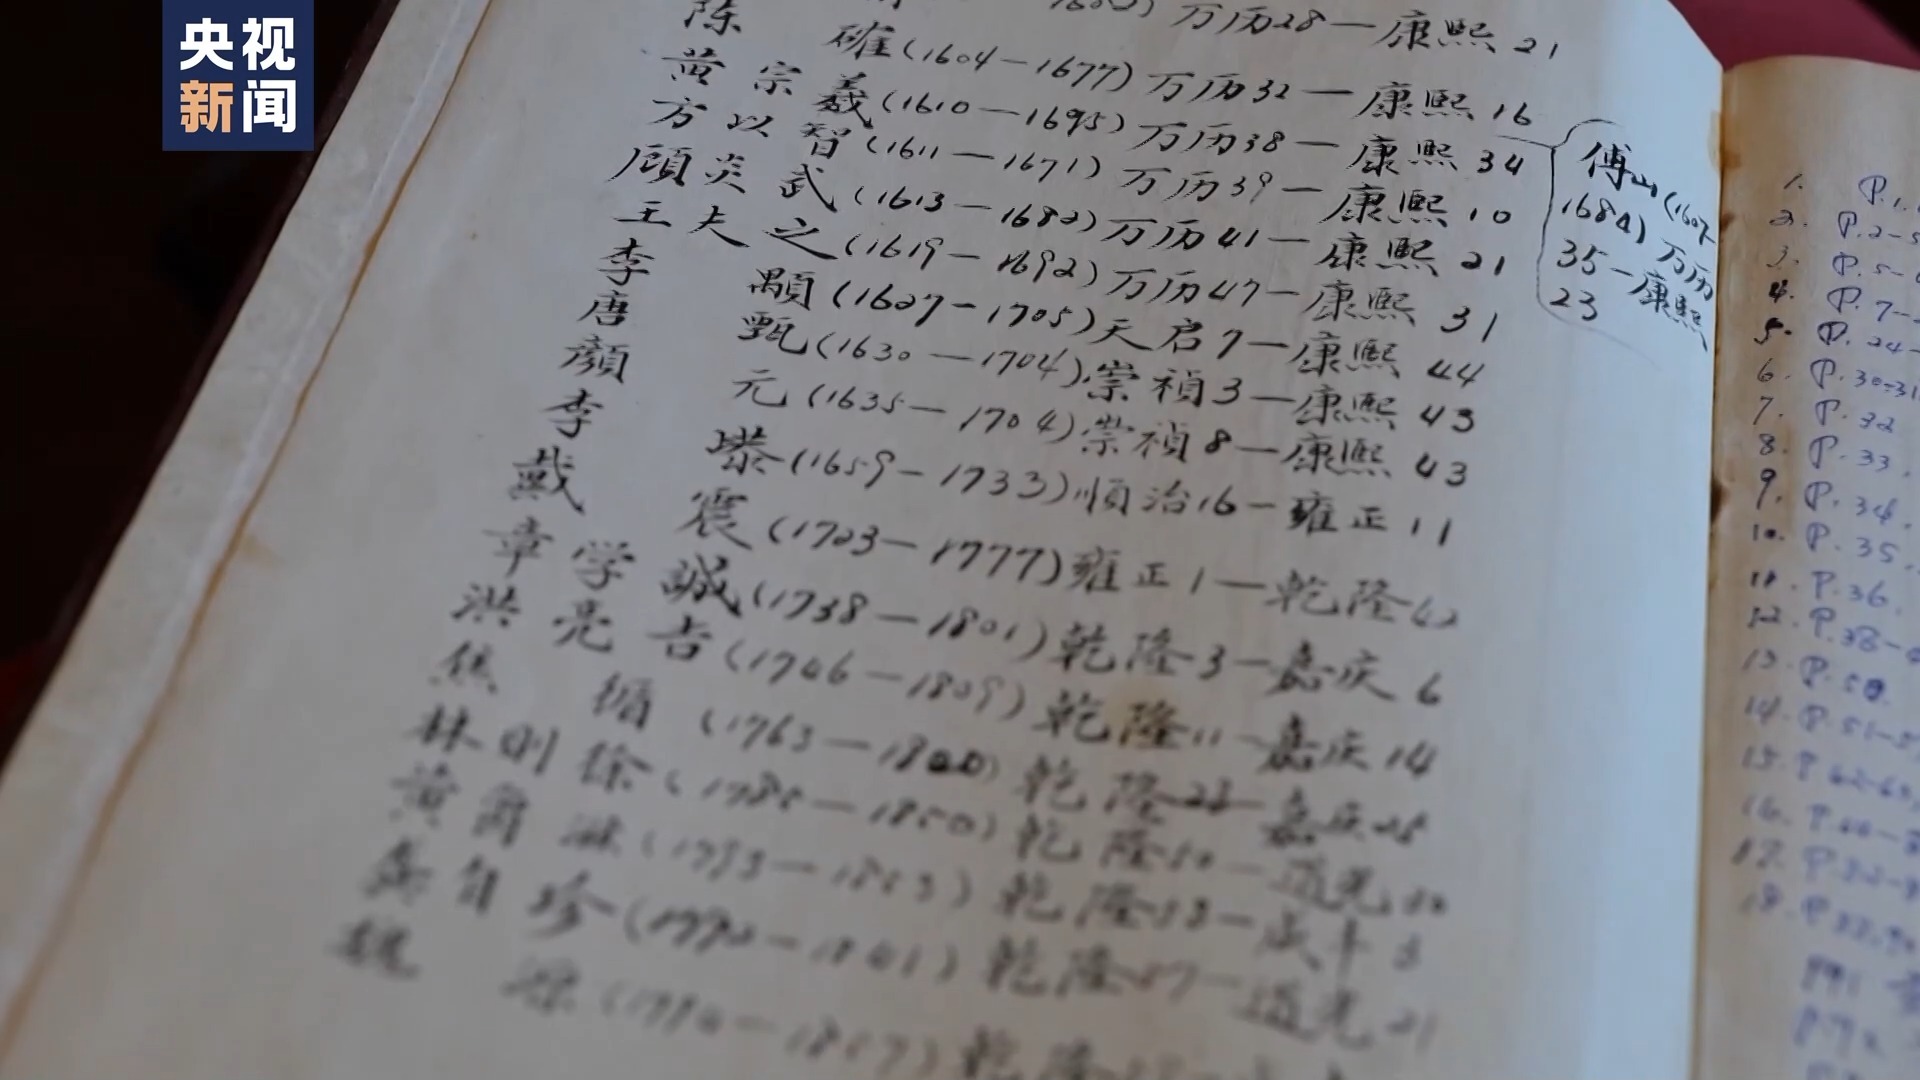 央视
新闻
万历28—康熙21
陈 確(1604—1677)万历32—康熙16
黄宗羲(1610—1695)万历38—康熙34
方以智(1611—1671)万历39—康熙10
顾炎武(1613—1682)万历41—康熙21
王夫之(1619—1692)万历47—康熙31
李 顒(1627—1705)天启7—康熙44
唐 甄(1630—1704)崇禎3—康熙43
顏 元(1635—1704)崇禎8—康熙43
李 塨(1659—1733)順治16—雍正11
戴 震(1723—1777)雍正1—乾隆42
章学誠(1738—1801)乾隆3—嘉庆6
洪亮吉(1746—1809)乾隆11—嘉庆14
焦 循(1763—1820)乾隆28—嘉庆25
林則徐(1785—1850)乾隆50—道光30
黄爵滋(1793—1853)乾隆58—咸丰3
龚自珍(1792—1841)乾隆57—道光21
魏 源(1794—1857)乾隆
傅山(1607—
1684)万历
35—康熙
23
1. P.1.
2. P.2-5
3. P.5-
4. P.7-
5. P.24-
6. P.30-31
7. P.32
8. P.33.
9. P.34.
10. P.35.
11. P.36.
12. P.38-
13. P.50.
14. P.51-5
15. P.62-63